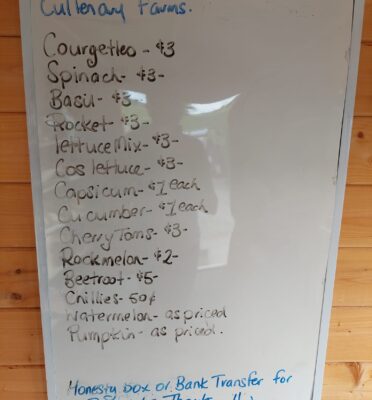 Cullenary Farms.
Courgettes - $3
Spinach - $3-
Basil - $3
Rocket - $3-
lettuce Mix - $3-
Cos lettuce - $3-
Capsicum - $1 each
Cucumber - $1 each
Cherry Toms - $3-
Rockmelon - $2-
Beetroot - $5-
Chillies - 50¢
Watermelon - as priced
Pumpkin - as priced.
Honesty box or Bank Transfer for
Thank